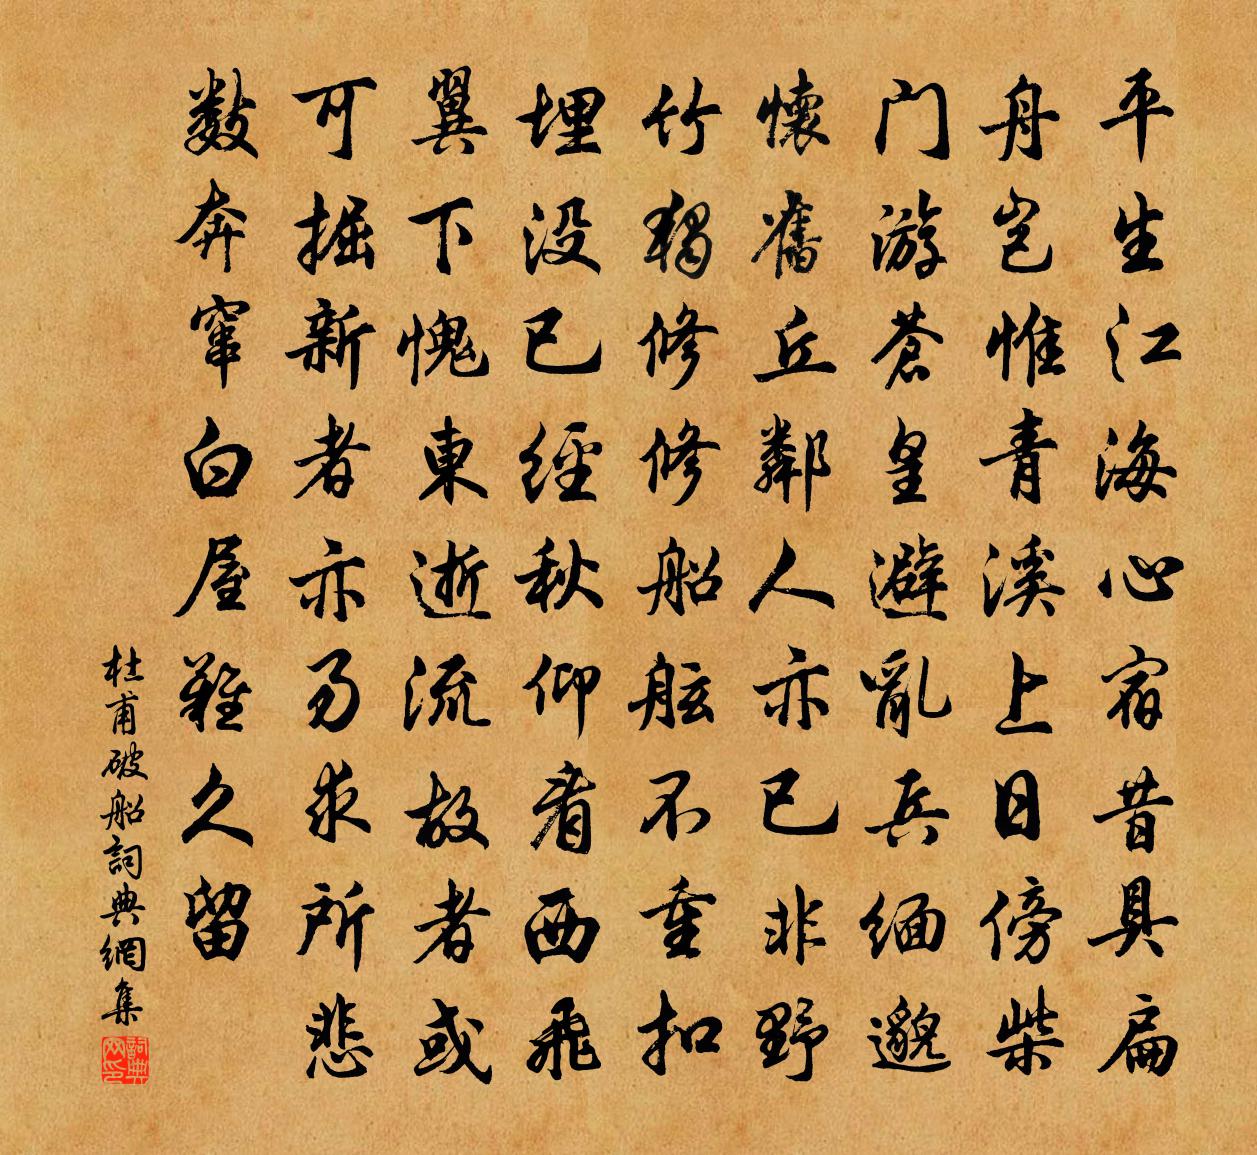 平生江海心宿昔具扁
舟岂惟青溪上日傍柴
门游蒼皇避亂兵緬邈
懷舊丘鄰人亦已非野
竹獨修修船舷不重扣
埋没已經秋仰看西飛
翼下愧東逝流故者或
可掘新者亦易求所悲
数奔竄白屋難久留
杜甫破船詞典網集
詞典网印